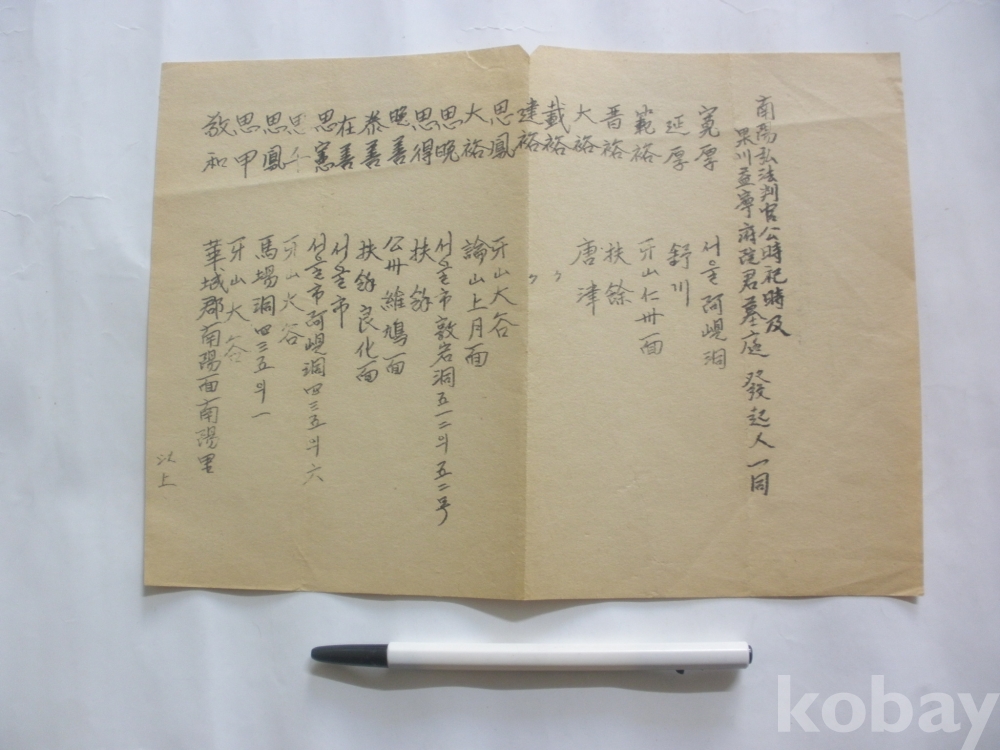 南陽弘法判官公時祀時及
果川益寧府院君墓庭 發起人一同
寬厚 서울阿峴洞
延厚 舒川
範裕 牙山仁州面
晋裕 扶餘
大裕 唐津
載裕 〃
建裕 〃
思鳳 牙山大谷
大裕 論山上月面
思晩 서울市敦岩洞五一二의五二号
思得 扶餘
晩善 公州維鳩面
泰善 扶餘良化面
在善 서울市
思憲 서울市阿峴洞四三五의六
思 牙山大谷
思鳳 馬場洞四三五의一
思甲 牙山大谷
敎和 華城郡南陽面南陽里
以上
kobay